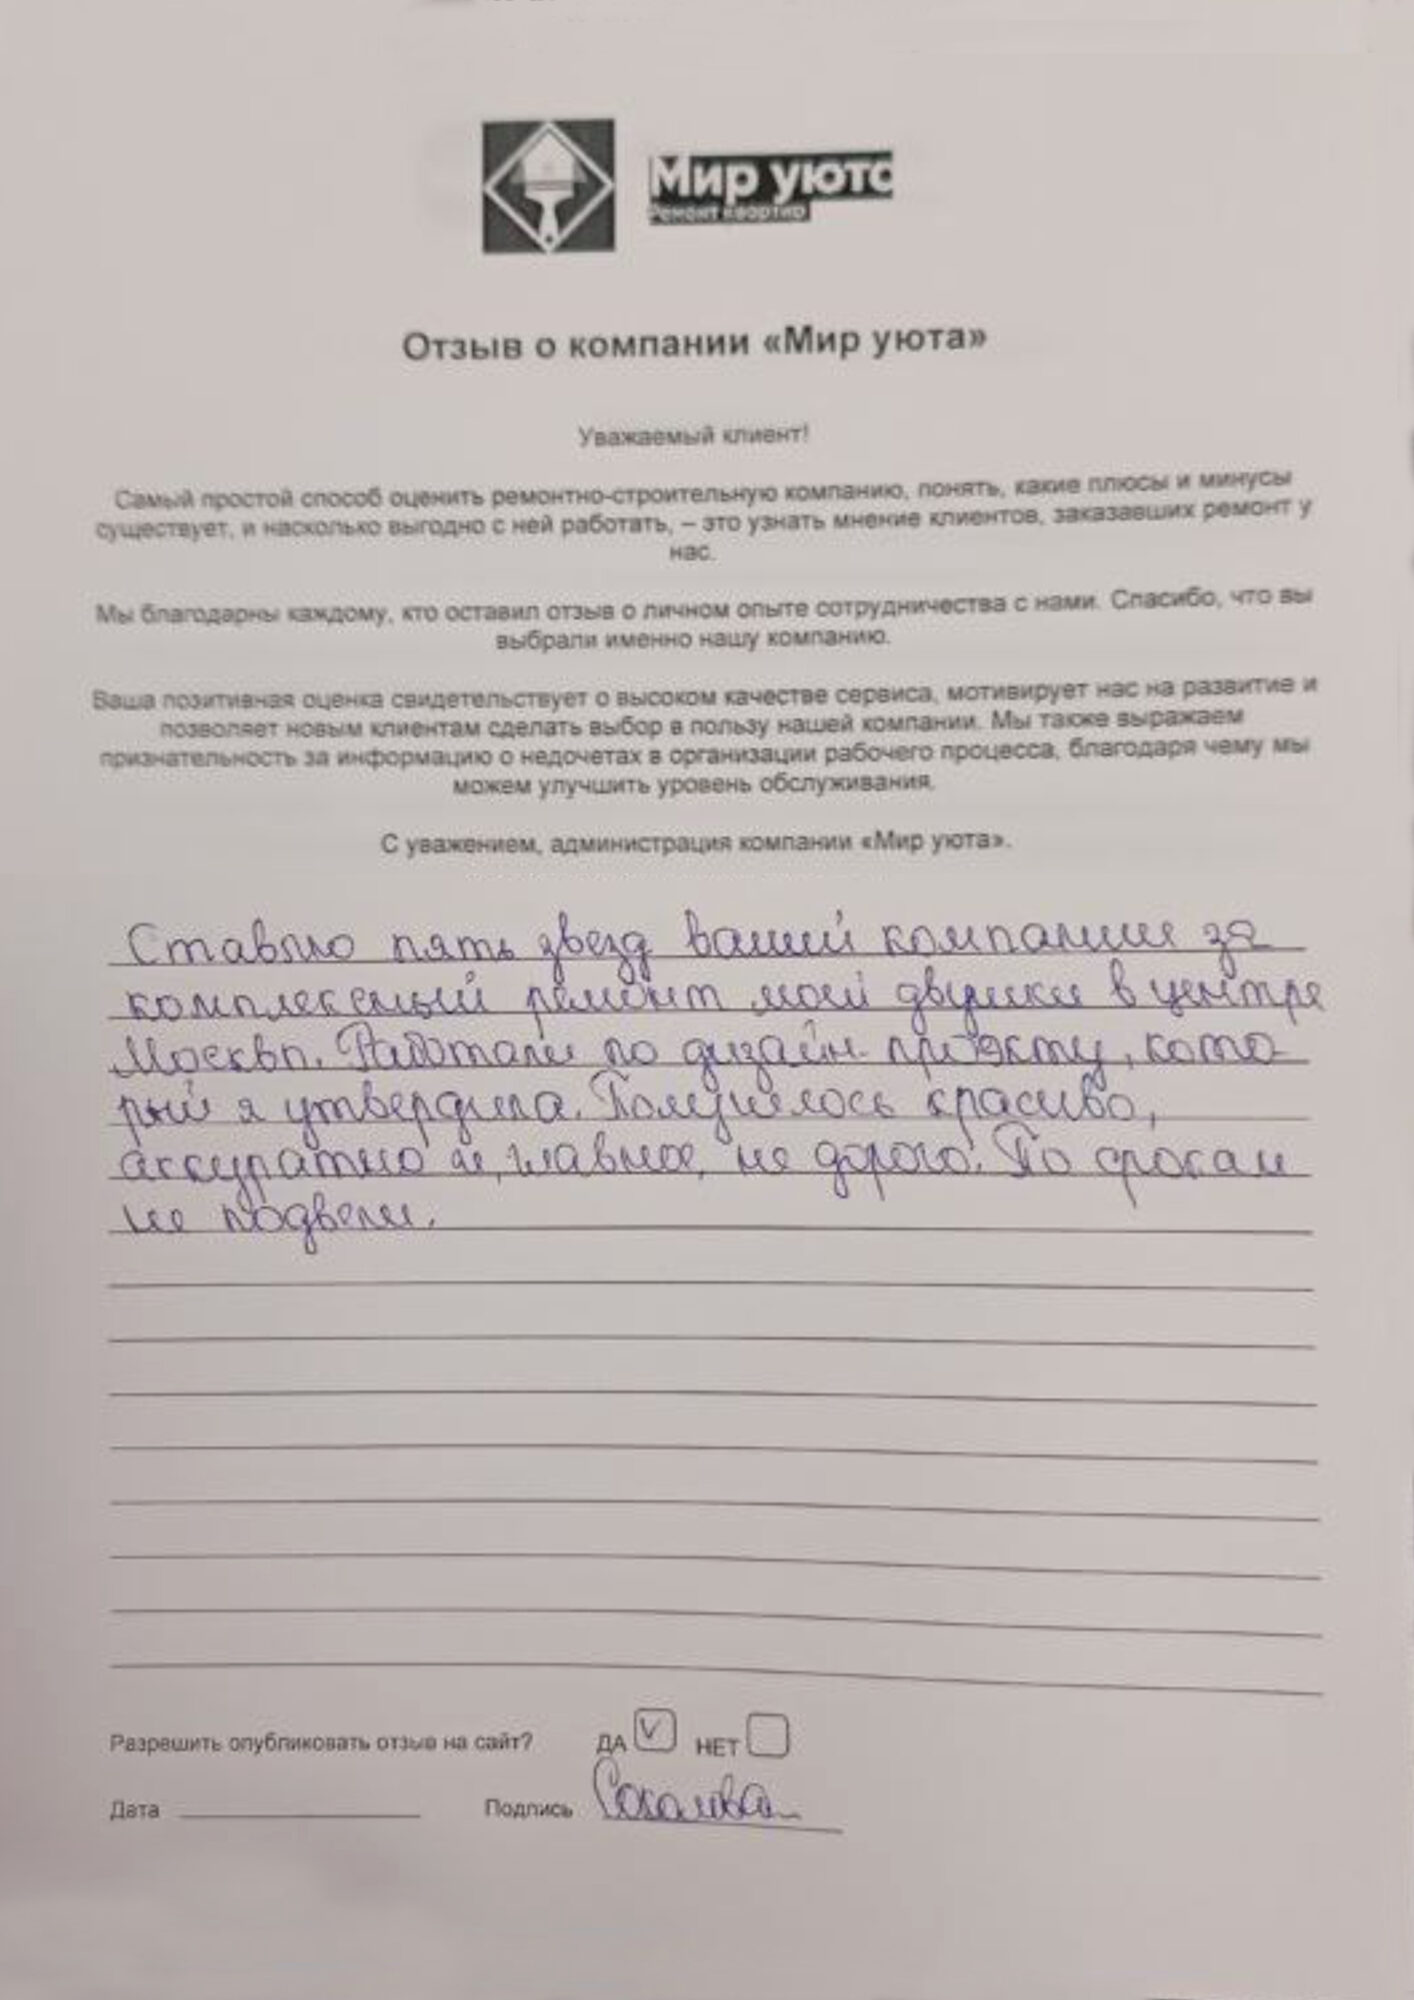 Мир уюта
Ремонт квартир
Отзыв о компании «Мир уюта»
Уважаемый клиент!
Самый простой способ оценить ремонтно-строительную компанию, понять, какие плюсы и минусы
существует, и насколько выгодно с ней работать, – это узнать мнение клиентов, заказавших ремонт у
нас.
Мы благодарны каждому, кто оставил отзыв о личном опыте сотрудничества с нами. Спасибо, что вы
выбрали именно нашу компанию.
Ваша позитивная оценка свидетельствует о высоком качестве сервиса, мотивирует нас на развитие и
позволяет новым клиентам сделать выбор в пользу нашей компании. Мы также выражаем
признательность за информацию о недочетах в организации рабочего процесса, благодаря чему мы
можем улучшить уровень обслуживания.
С уважением, администрация компании «Мир уюта».
Ставлю пять звезд вашей компании за
комплексный ремонт моей двушки в центре
Москвы. Работали по дизайн-проекту, кото-
рый я утвердила. Получилось красиво,
аккуратно и, главное, не дорого. По срокам
не подвели.
Разрешить опубликовать отзыв на сайт? ДА V НЕТ
Дата Подпись Соколова